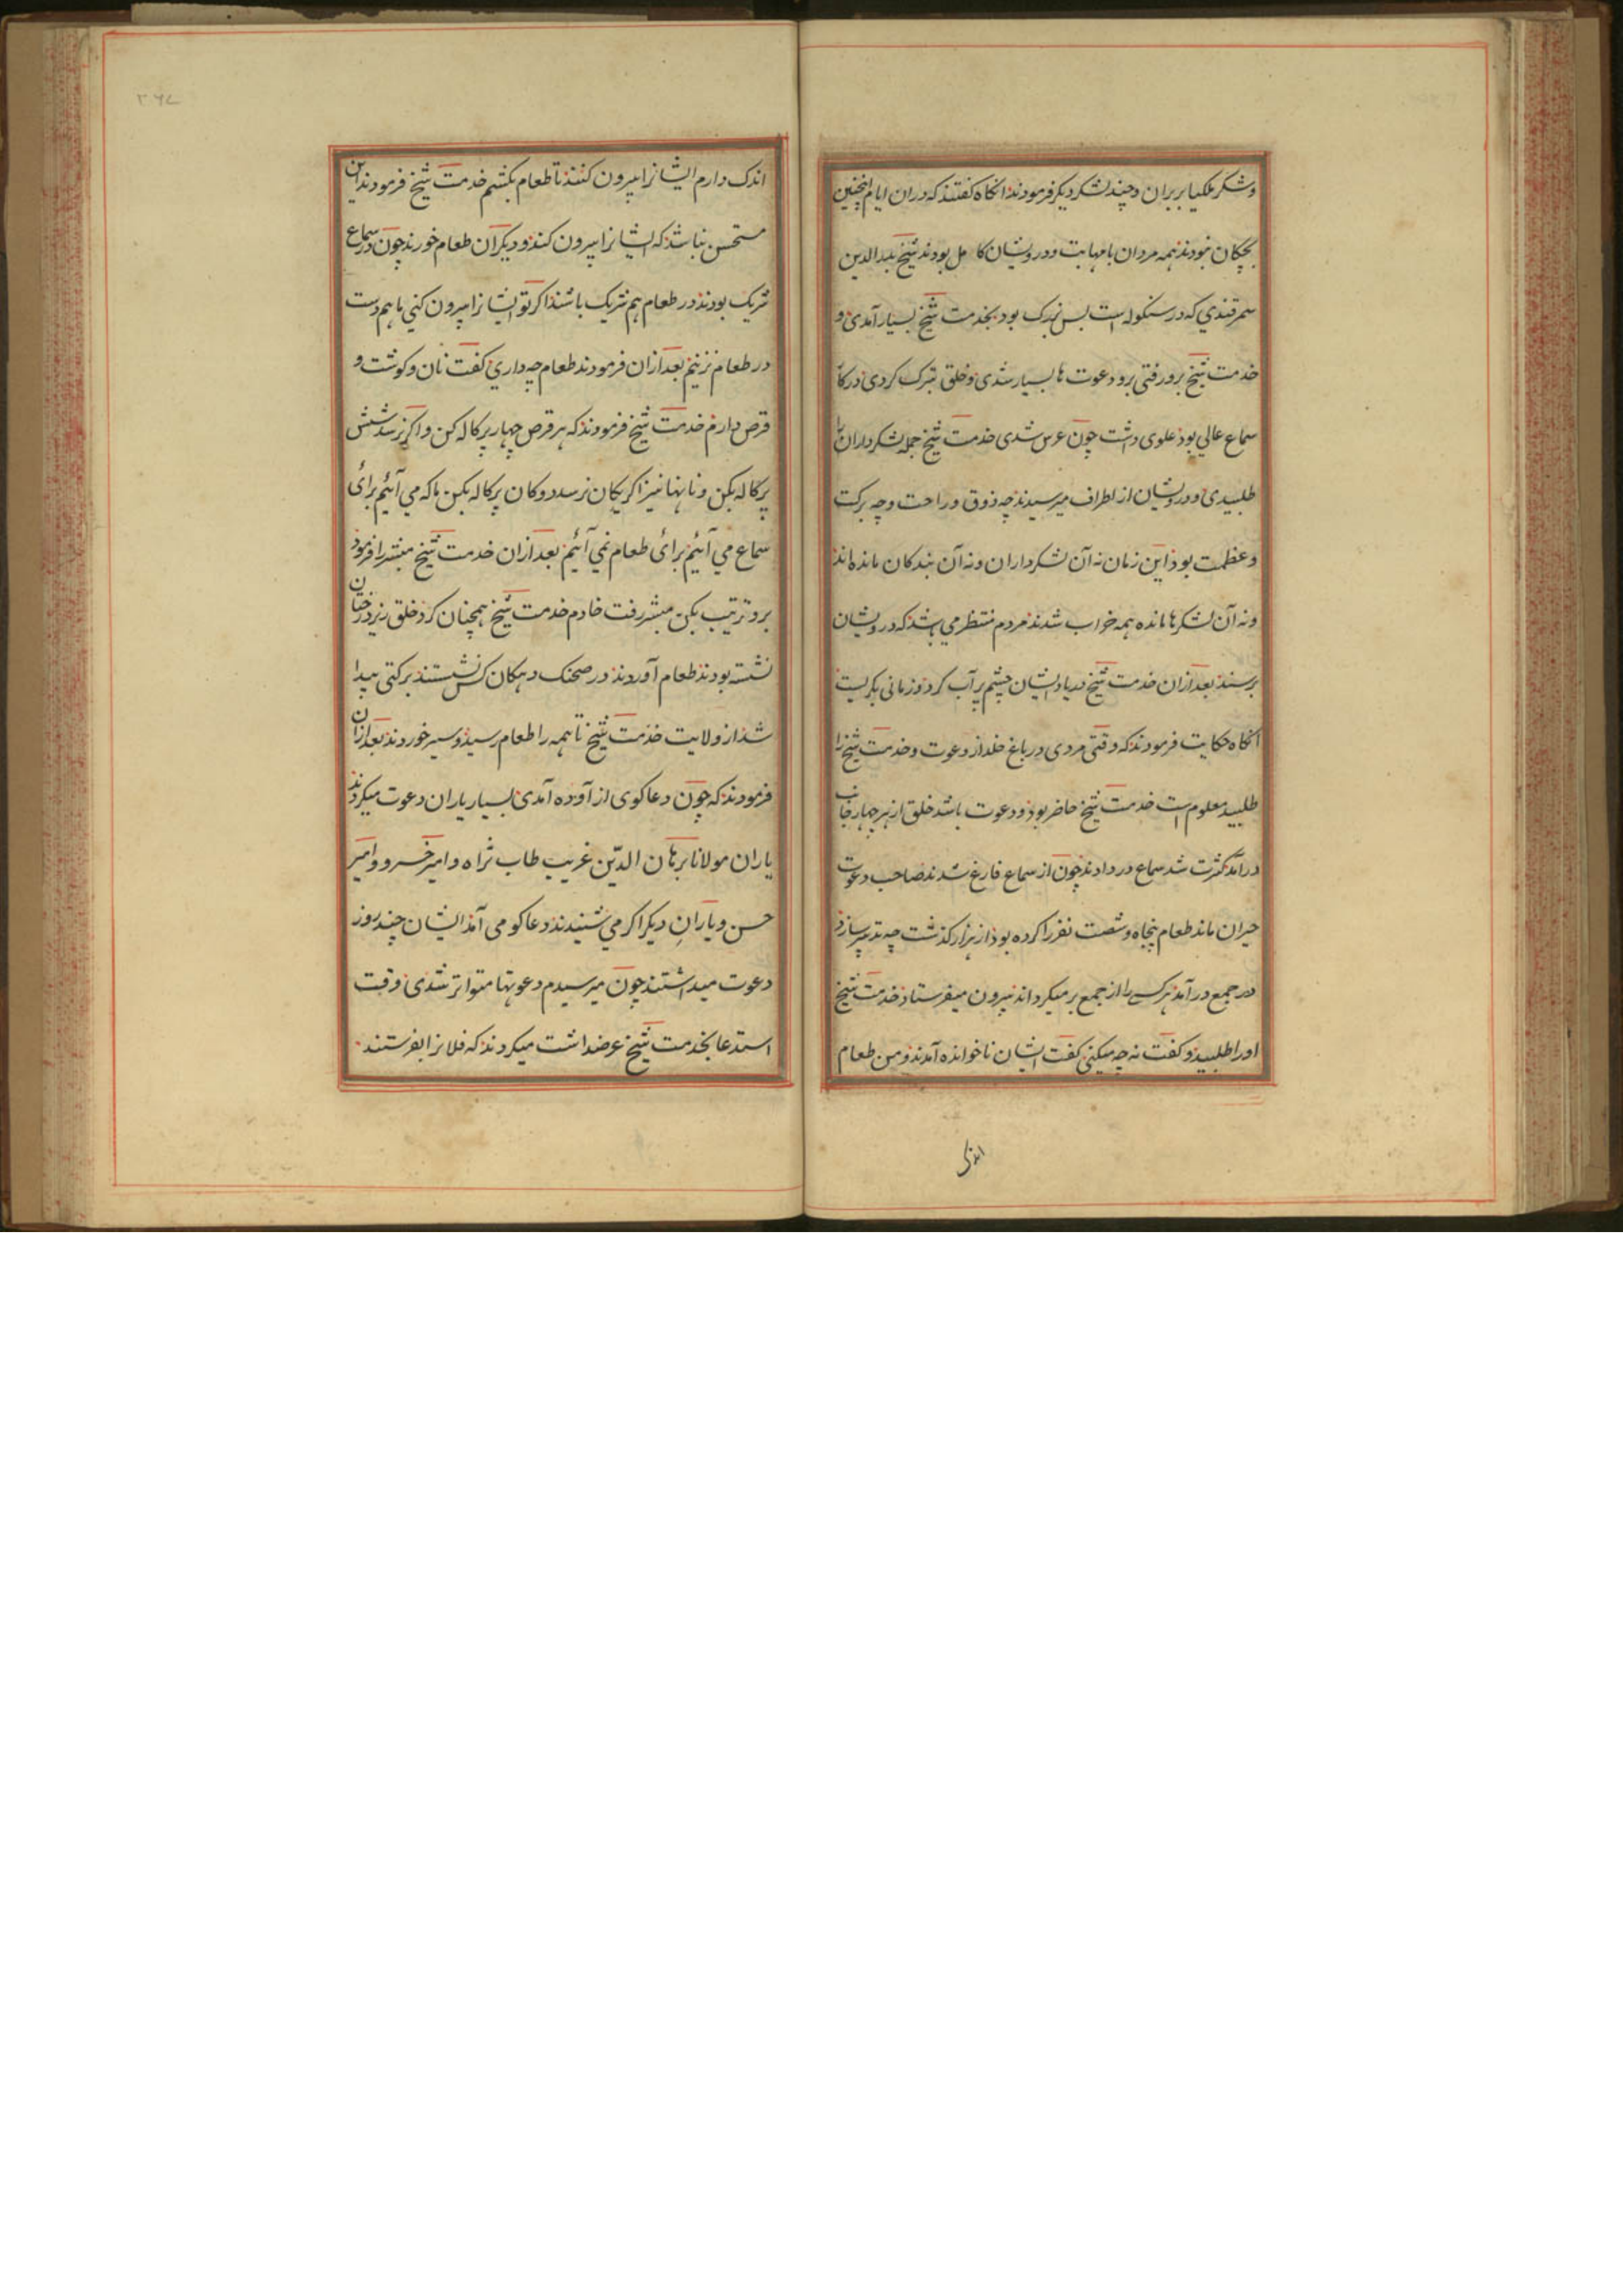 ولشکر ملکیار پران وچند لشکر دیکر فرمودند انکاه کفتند که دران ایام اینچنین
بچکان نبودند همه مردان با مهابت ودرویشان کامل بودند شیخ بدرالدین
سمرقندی که در سنکوله است بس بزرک بود بخدمت شیخ بسیار آمدی و
خدمت شیخ برو رفتی برو دعوت ها بسیار شدی وخلق تبرک کردی درکار
سماع عالی بود علوی داشت چون عرس شدی خدمت شیخ جمله لشکرداران را
طلبیدی ودرویشان از اطراف میرسیدند چه ذوق وراحت وچه برکت
وعظمت بود این زمان نه آن لشکرداران ونه آن بندکان مانده اند
ونه آن لشکرها مانده همه خواب شدند مردم منتظر می باشد که درویشان
برسند بعد ازان خدمت شیخ دریاد ایشان چشم پر آب کرد وزمانی بکریست
انکاه حکایت فرمودند که وقتی مردی در باغ خلد از دعوت وخدمت شیخ را
طلبید معلوم است خدمت شیخ حاضر بود ودعوت باشد خلق از هر چهار جانب
درآمد کثرت شد سماع در دادند چون از سماع فارغ شدند صاحب دعوت
حیران ماند طعام پنجاه وشصت نفر را کرده بود از هزار کذشت چه تدبیر سازد
در جمع درآمد هر کسی را از جمع بر میکرداند بیرون میفرستاد خدمت شیخ
اورا طلبید وکفت نه چه میکنی کفت ایشان ناخوانده آمدند ومن طعام
اندکی
۳۶۷
اندک دارم ایشانرا بیرون کنند تا طعام بکشم خدمت شیخ فرمودند این
مستحسن نباشد که ایشانرا بیرون کنند ودیکران طعام خورند چون در سماع
شریک بودند در طعام هم شریک باشند اکر تو ایشانرا بیرون کنی ما هم دست
در طعام نزنیم بعد ازان فرمودند طعام چه داری کفت نان وکوشت و
قرص دارم خدمت شیخ فرمودند که هر قرص چهار پرکاله کن واکر نرسد شش
پرکاله بکن ونانها نیز اکر یکان نرسد دوکان پرکاله بکن ما که می آئیم برای
سماع می آئیم برای طعام نمی آئیم بعد ازان خدمت شیخ مبشر را فرمود
برو ترتیب بکن مبشر رفت خادم خدمت شیخ همچنان کرد خلق زیر درختان
نشسته بودند طعام آوردند در صحنک دهکان کس نشستند برکتی پیدا
شد از ولایت خدمت شیخ تا همه را طعام رسید وسیر خوردند بعد ازان
فرمودند که چون دعاکوی از آوده آمدی بسیار یاران دعوت میکردند
یاران مولانا برهان الدین غریب طاب ثراه وامیر خسرو وامیر
حسن ویاران دیکر اکر می شنیدند دعاکو می آمد ایشان چند روز
دعوت میداشتند چون میرسیدم دعوتها متواتر شدی وقت
استدعا بخدمت شیخ عرضداشت میکردند که فلانرا بفرستند